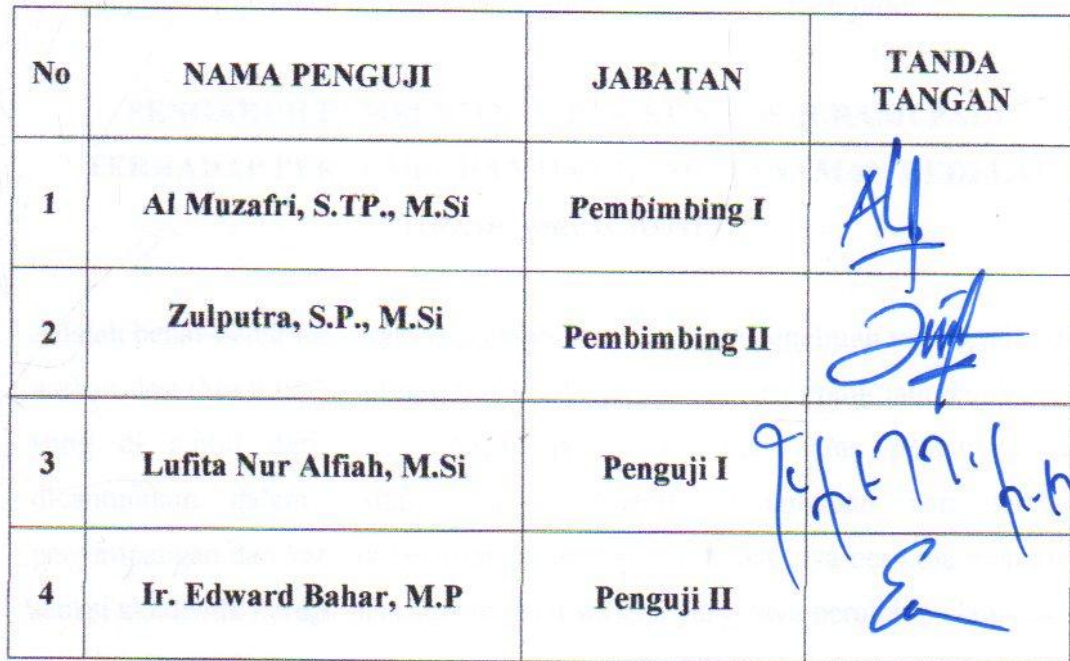 No NAMA PENGUJI JABATAN TANDA
TANGAN
1 Al Muzafri, S.TP., M.Si Pembimbing I
2 Zulputra, S.P., M.Si Pembimbing II
3 Lufita Nur Alfiah, M.Si Penguji I
4 Ir. Edward Bahar, M.P Penguji II